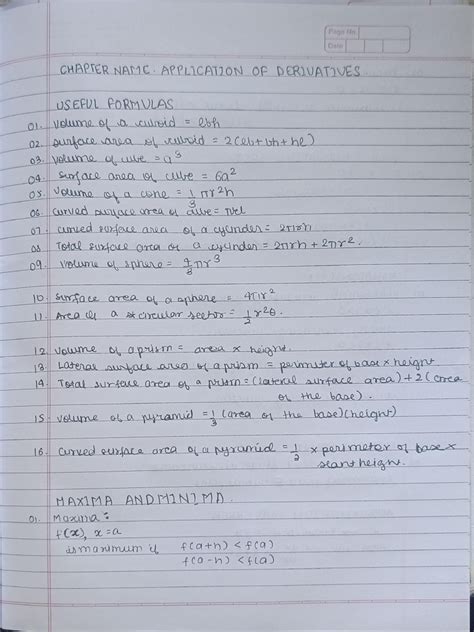 Page No.
Date
CHAPTER NAME: APPLICATION OF DERIVATIVES
USEFUL FORMULAS
01. Volume of a cuboid = lbh
02. Surface area of cuboid = 2(lb+bh+hl)
03. Volume of cube = a³
04. Surface area of cube = 6a²
05. Volume of a cone = 1/3 πr²h
06. Curved surface area of cube = πrl
07. Curved surface area of a cylinder = 2πrh
08 Total surface area of a cylinder = 2πrh + 2πr².
09. Volume of sphere = 4/3 πr³
10. Surface area of a sphere = 4πr²
11. Area of a circular sector = 1/2 r²θ.
12. Volume of a prism = area × height.
13. Lateral surface area of a prism = perimeter of base × height
14. Total surface area of a prism = (lateral surface area) + 2 (area of the base).
15. Volume of a pyramid = 1/3 (area of the base)(height)
16. Curved surface area of a pyramid = 1/2 × perimeter of base × slant height.
MAXIMA AND MINIMA.
01. Maxima:
f(x), x=a
is maximum if f(a+h) < f(a)
f(a-h) < f(a)